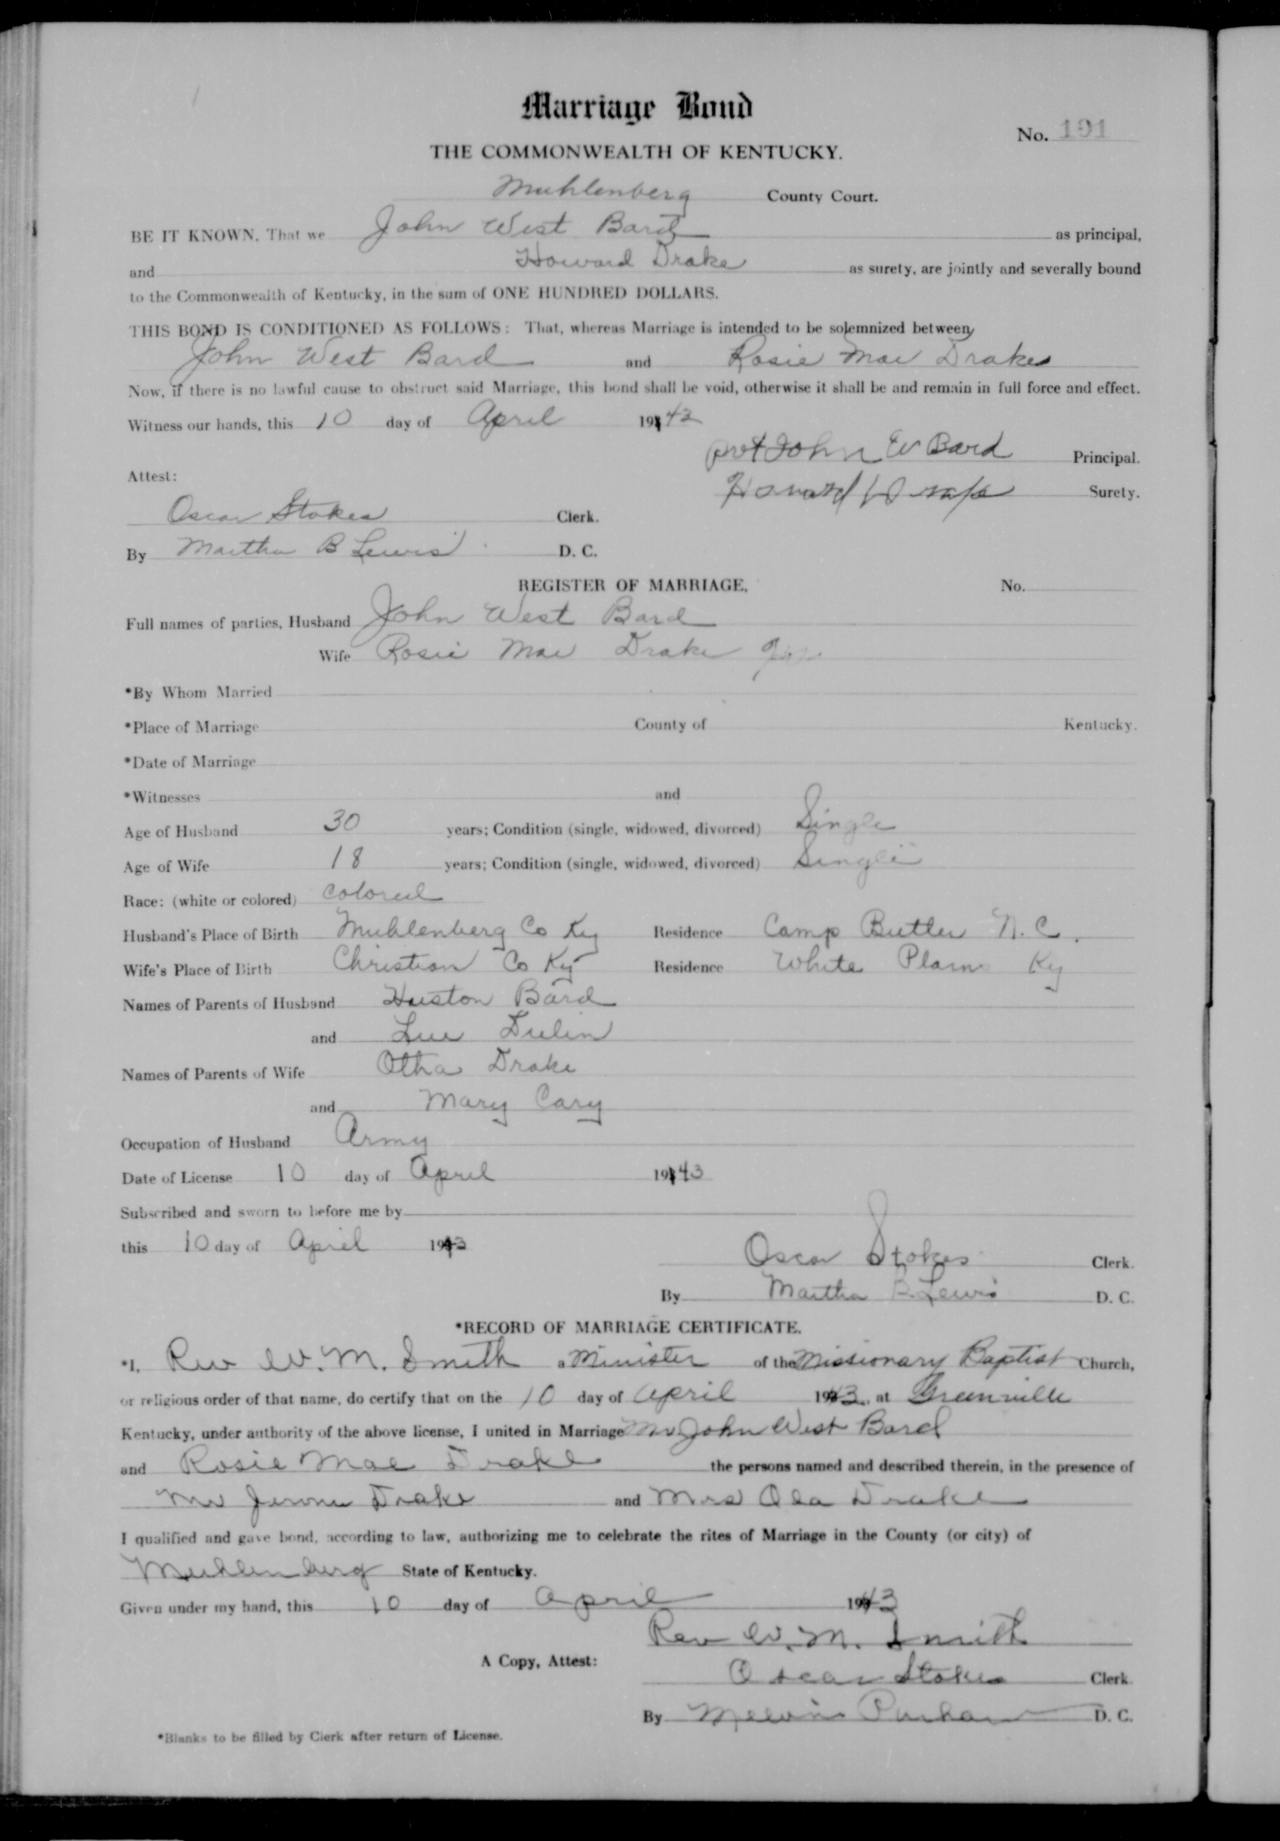 Marriage Bond
No. 191
THE COMMONWEALTH OF KENTUCKY.
Muhlenberg County Court.
BE IT KNOWN, That we John West Bard as principal,
and Howard Drake as surety, are jointly and severally bound
to the Commonwealth of Kentucky, in the sum of ONE HUNDRED DOLLARS.
THIS BOND IS CONDITIONED AS FOLLOWS: That, whereas Marriage is intended to be solemnized between
John West Bard and Rosie Mae Drake
Now, if there is no lawful cause to obstruct said Marriage, this bond shall be void, otherwise it shall be and remain in full force and effect.
Witness our hands, this 10 day of April 1943
Pvt John W Bard Principal.
Attest:
Howard Drake Surety.
Oscar Stokes Clerk.
By Martha B Lewis D. C.
REGISTER OF MARRIAGE, No.
Full names of parties, Husband John West Bard
Wife Rosie Mae Drake
*By Whom Married
*Place of Marriage County of Kentucky.
*Date of Marriage
*Witnesses and
Age of Husband 30 years; Condition (single, widowed, divorced) Single
Age of Wife 18 years; Condition (single, widowed, divorced) Single
Race: (white or colored) Colored
Husband's Place of Birth Muhlenberg Co Ky Residence Camp Butler N. C.
Wife's Place of Birth Christian Co Ky Residence White Plains Ky
Names of Parents of Husband Huston Bard
and Lue Dulin
Names of Parents of Wife Otha Drake
and Mary Cary
Occupation of Husband Army
Date of License 10 day of April 1943
Subscribed and sworn to before me by
this 10 day of April 1943
Oscar Stokes Clerk.
By Martha B Lewis D. C.
*RECORD OF MARRIAGE CERTIFICATE.
*I, Rev W. M. Smith a Minister of the Missionary Baptist Church,
or religious order of that name, do certify that on the 10 day of April 1943, at Greenville
Kentucky, under authority of the above license, I united in Marriage Mr John West Bard
and Rosie Mae Drake the persons named and described therein, in the presence of
Mr Jerome Drake and Mrs Ola Drake
I qualified and gave bond, according to law, authorizing me to celebrate the rites of Marriage in the County (or city) of
Muhlenberg State of Kentucky.
Given under my hand, this 10 day of April 1943
Rev W. M. Smith
A Copy, Attest:
Oscar Stokes Clerk
By Melvin D. C.
*Blanks to be filled by Clerk after return of License.